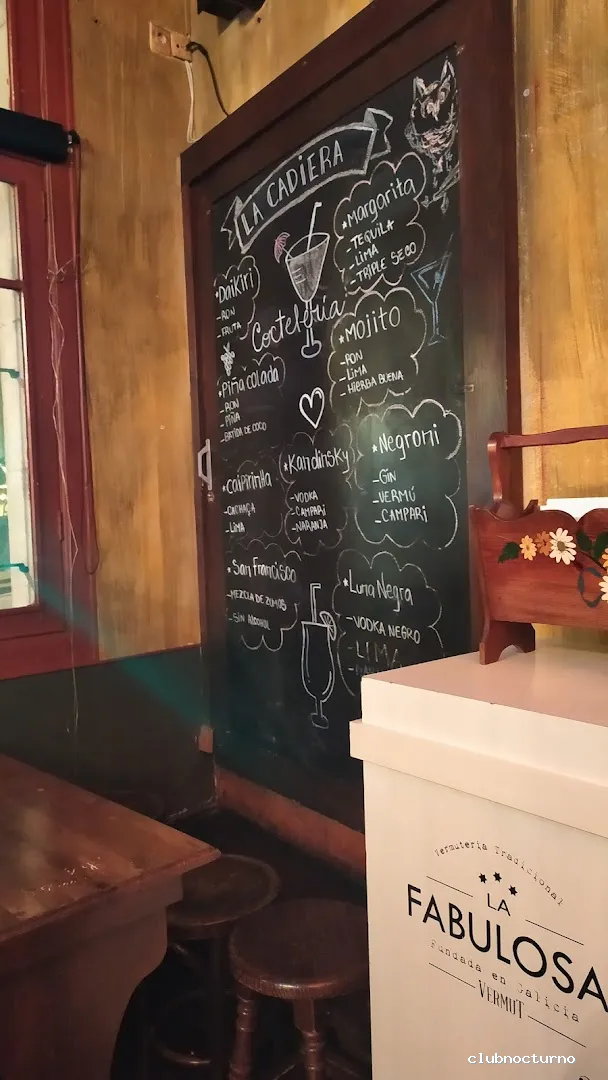 LA CADIERA
Coctelería
*Daikiri
-RON
-FRUTA
*Margarita
-TEQUILA
-LIMA
-TRIPLE SECO
*Piña colada
-RON
-PIÑA
-BATIDA DE COCO
*Mojito
-RON
-LIMA
-HIERBA BUENA
*caipirinha
-CACHAÇA
-LIMA
*Kandinsky
-VODKA
-CAMPARI
-NARANJA
*Negroni
-GIN
-VERMÚ
-CAMPARI
*San Francisco
-MEZCLA DE ZUMOS
-SIN ALCOHOL
*Luna Negra
-VODKA NEGRO
-LIMA
Vermutería Tradicional
LA
FABULOSA
Fundada en Galicia
VERMUT
clubnocturno